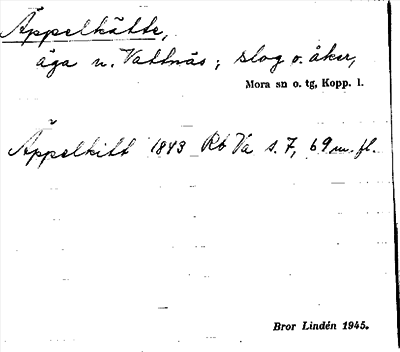 Äppelkätte,
äga n. Vattnäs; slog o. åker,
Mora sn o. tg, Kopp. l.
Äppelkitt 1843 Rb Va s. 7, 69 m. fl.
Bror Lindén 1945.